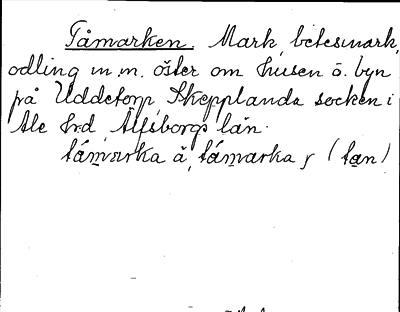 Tåmarken. Mark, betesmark,
odling m.m. öster om husen ö. byn
på Uddetorp, Skepplanda socken i
Ale hd, Älfsborgs län.
támarka å, támarka, (tan)